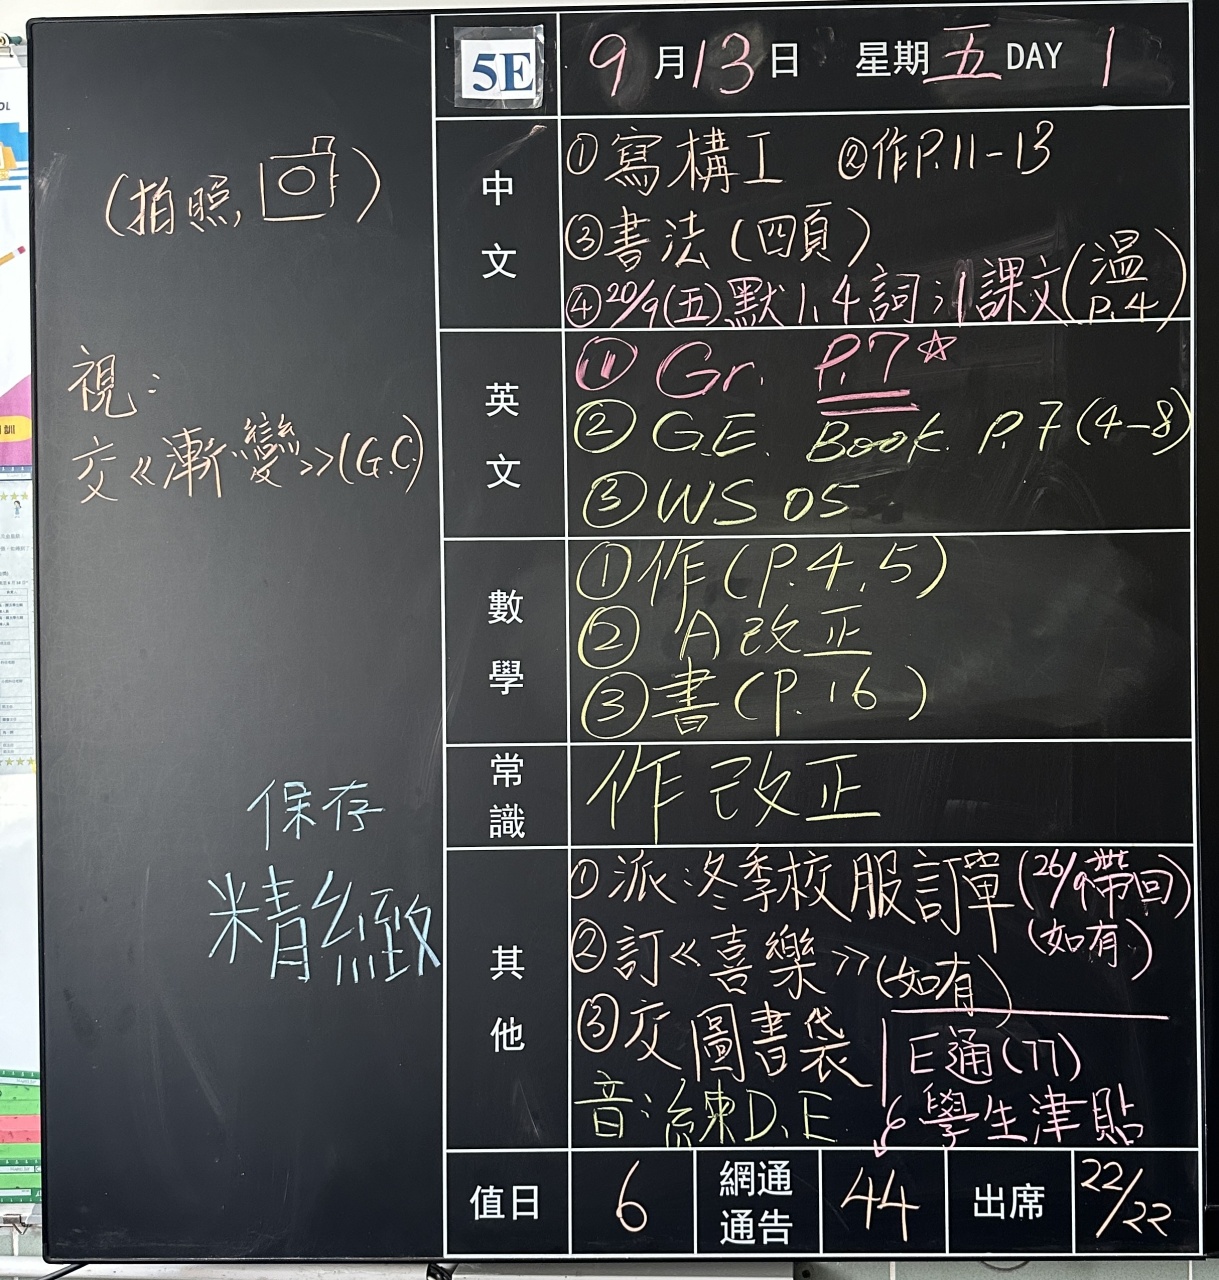 5E 9月13日 星期五 DAY 1
中文
①寫構工 ②作P.11-13
③書法(四頁)
④20/9(五)默1.4詞;1課文(溫P.4)
英文
① Gr. P.7☆
② G.E. Book P.7(4-8)
③ WS 05
數學
①作(P.4,5)
② A改正
③書(P.16)
常識
作改正
其他
①派:冬季校服訂單(26/9帶回)
(如有)
②訂《喜樂》(如有)
③交圖書袋
E通(77)
學生津貼
音:練D、E
值日 6 網通通告 44 出席 22/22
(拍照,)
視:
交《漸變》(G.C)
保存
精緻